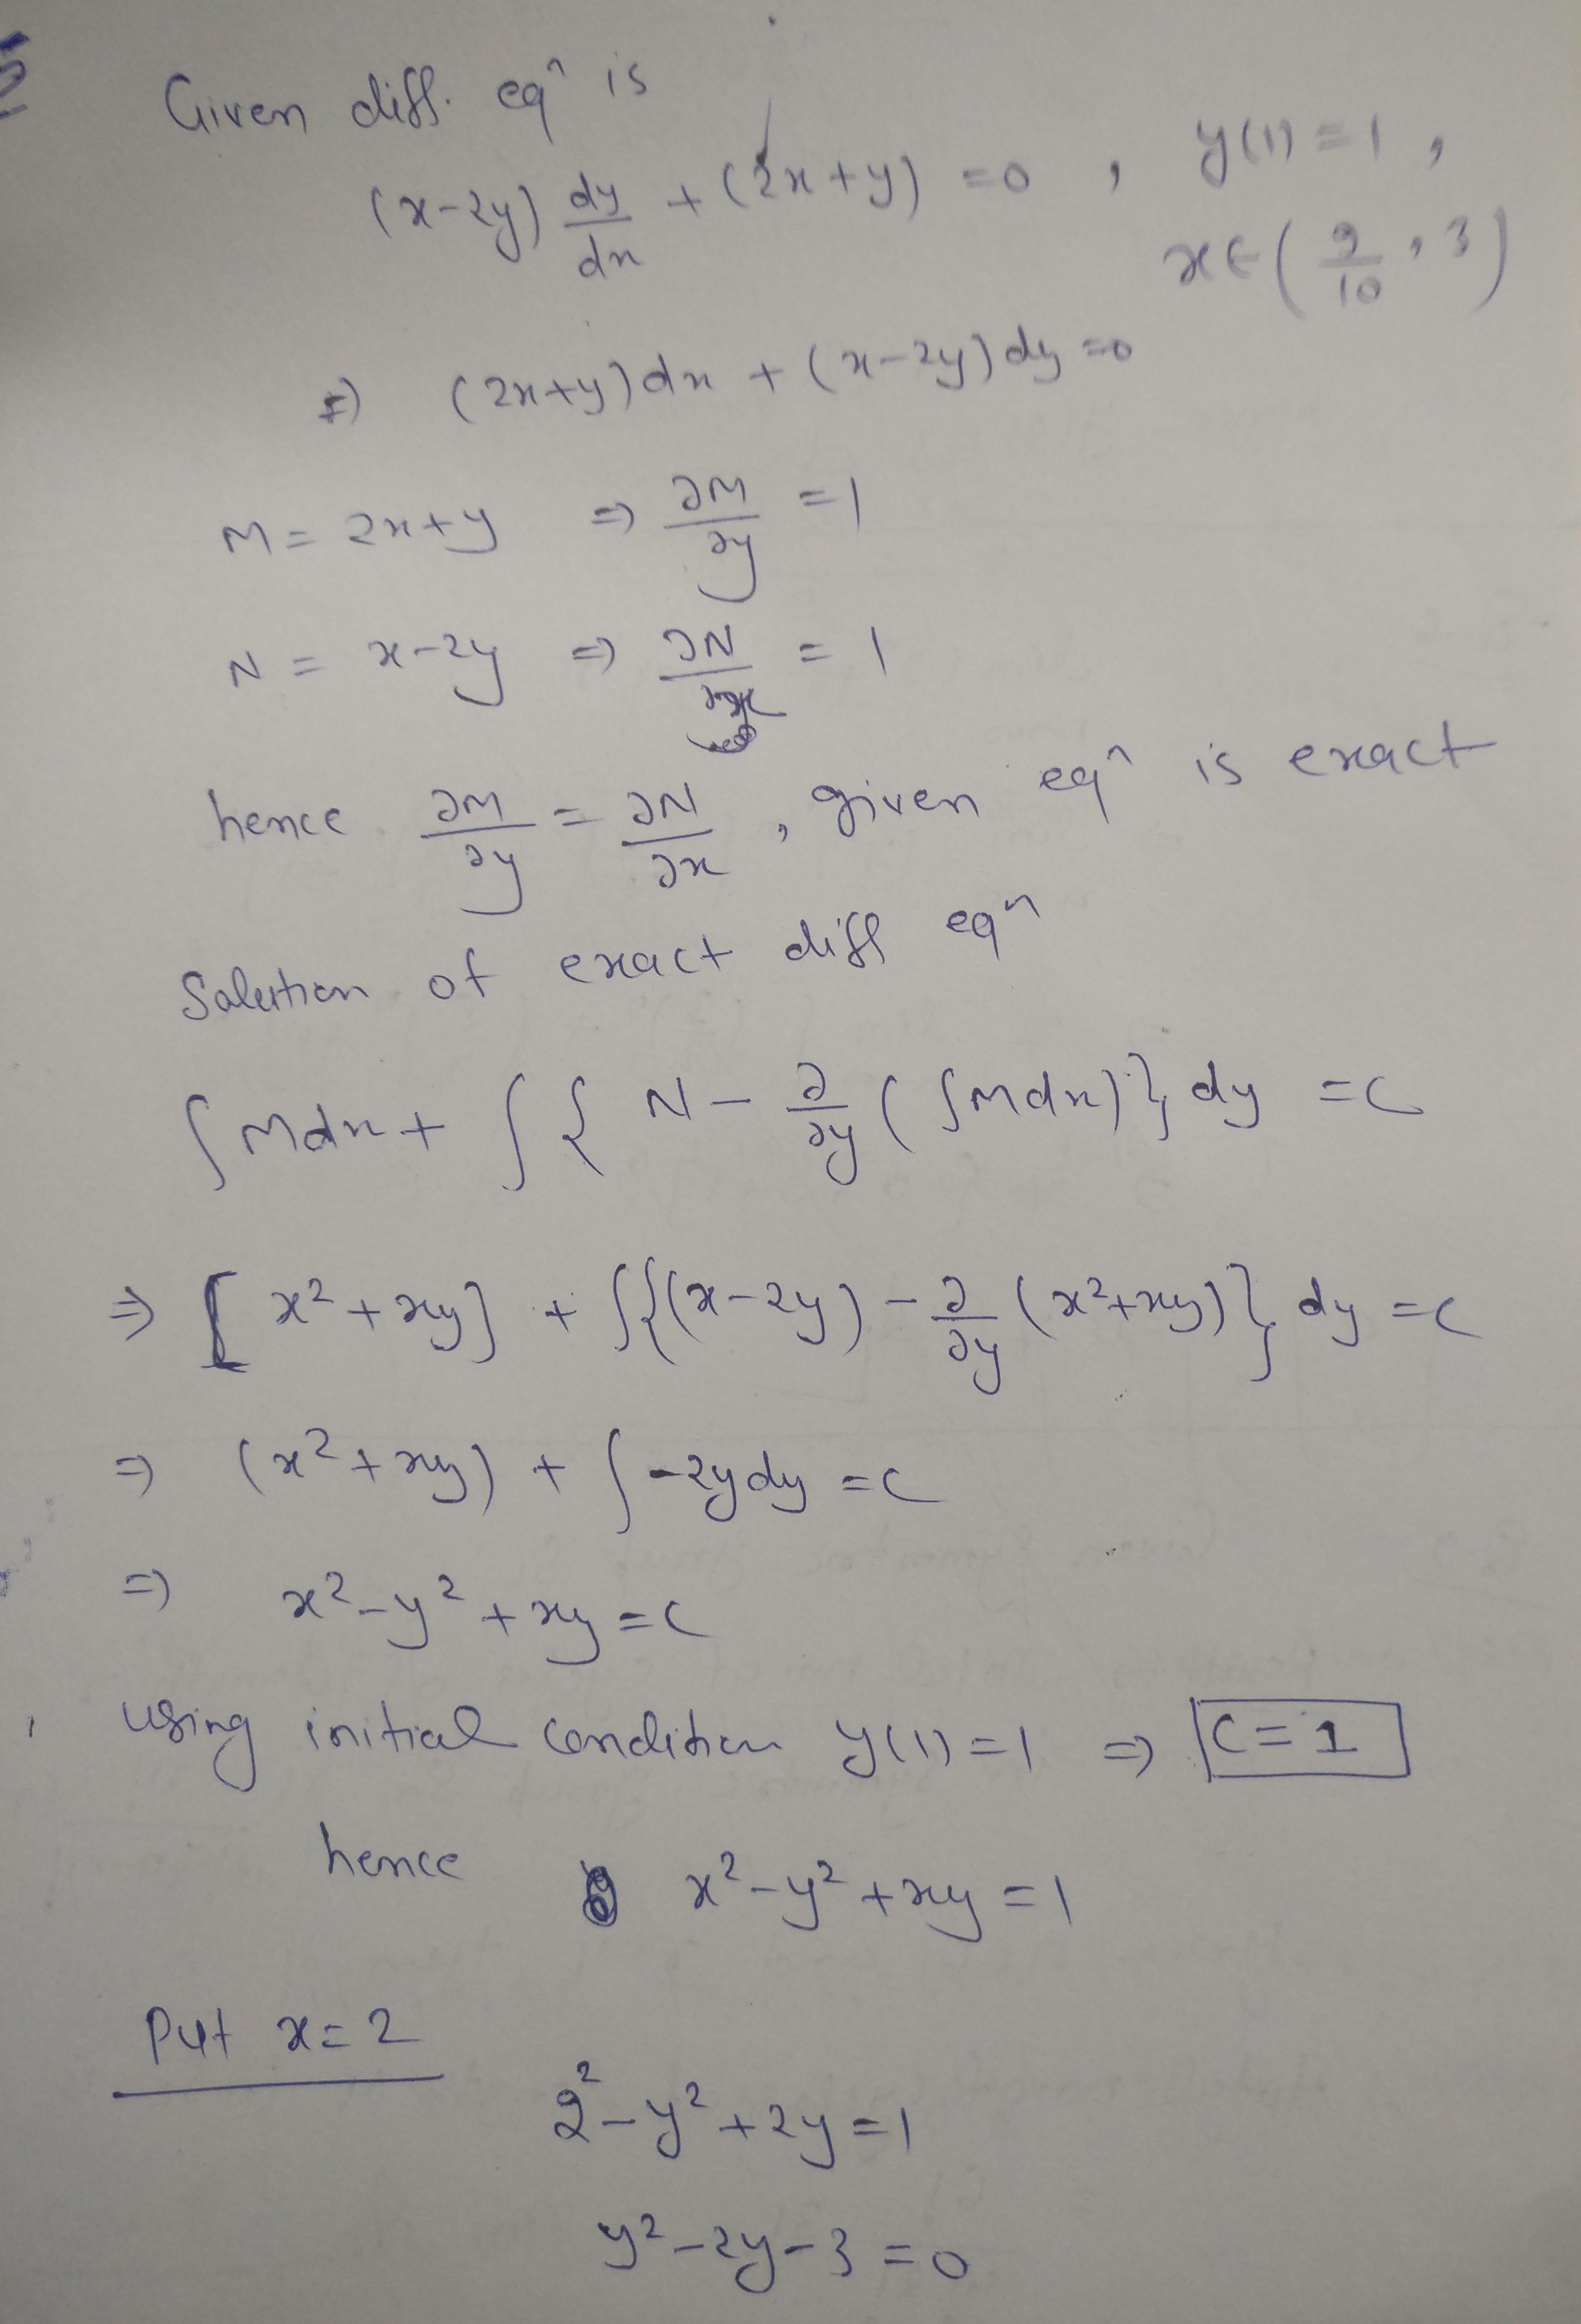 Given diff. eqⁿ is
(x-2y) dy/dx + (2x+y) =0 , y(1)=1 ,
x∈(9/10, 3)
⇒ (2x+y)dx + (x-2y)dy =0
M = 2x+y ⇒ ∂M/∂y =1
N = x-2y ⇒ ∂N/∂x = 1
hence ∂M/∂y = ∂N/∂x , given eqⁿ is exact
Solution of exact diff eqⁿ
∫Mdx + ∫{ N - ∂/∂y (∫Mdx)} dy =C
⇒ [x²+xy] + ∫{(x-2y) - ∂/∂y (x²+xy)} dy =C
⇒ (x²+xy) + ∫-2ydy =C
⇒ x²-y²+xy=C
using initial condition y(1)=1 ⇒ C=1
hence x²-y²+xy=1
Put x=2
2²-y²+2y=1
y²-2y-3=0